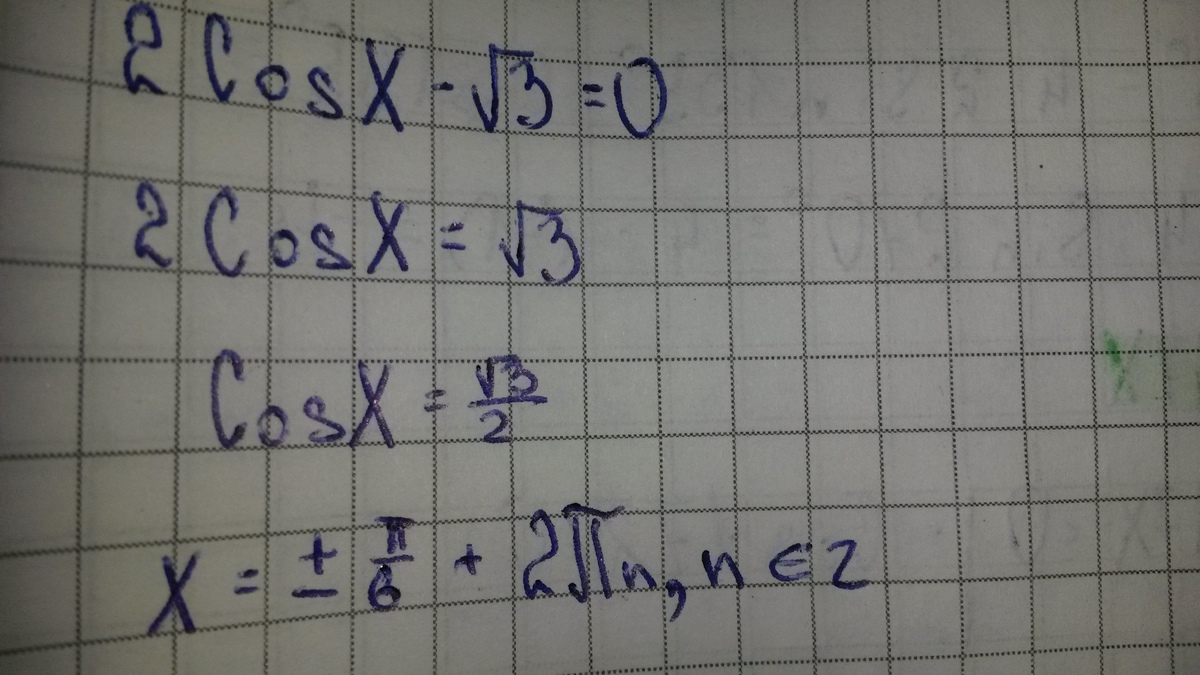 2 Cos X - √3 = 0
2 Cos X = √3
Cos X = √3/2
X = ± π/6 + 2πn, n ∈ Z